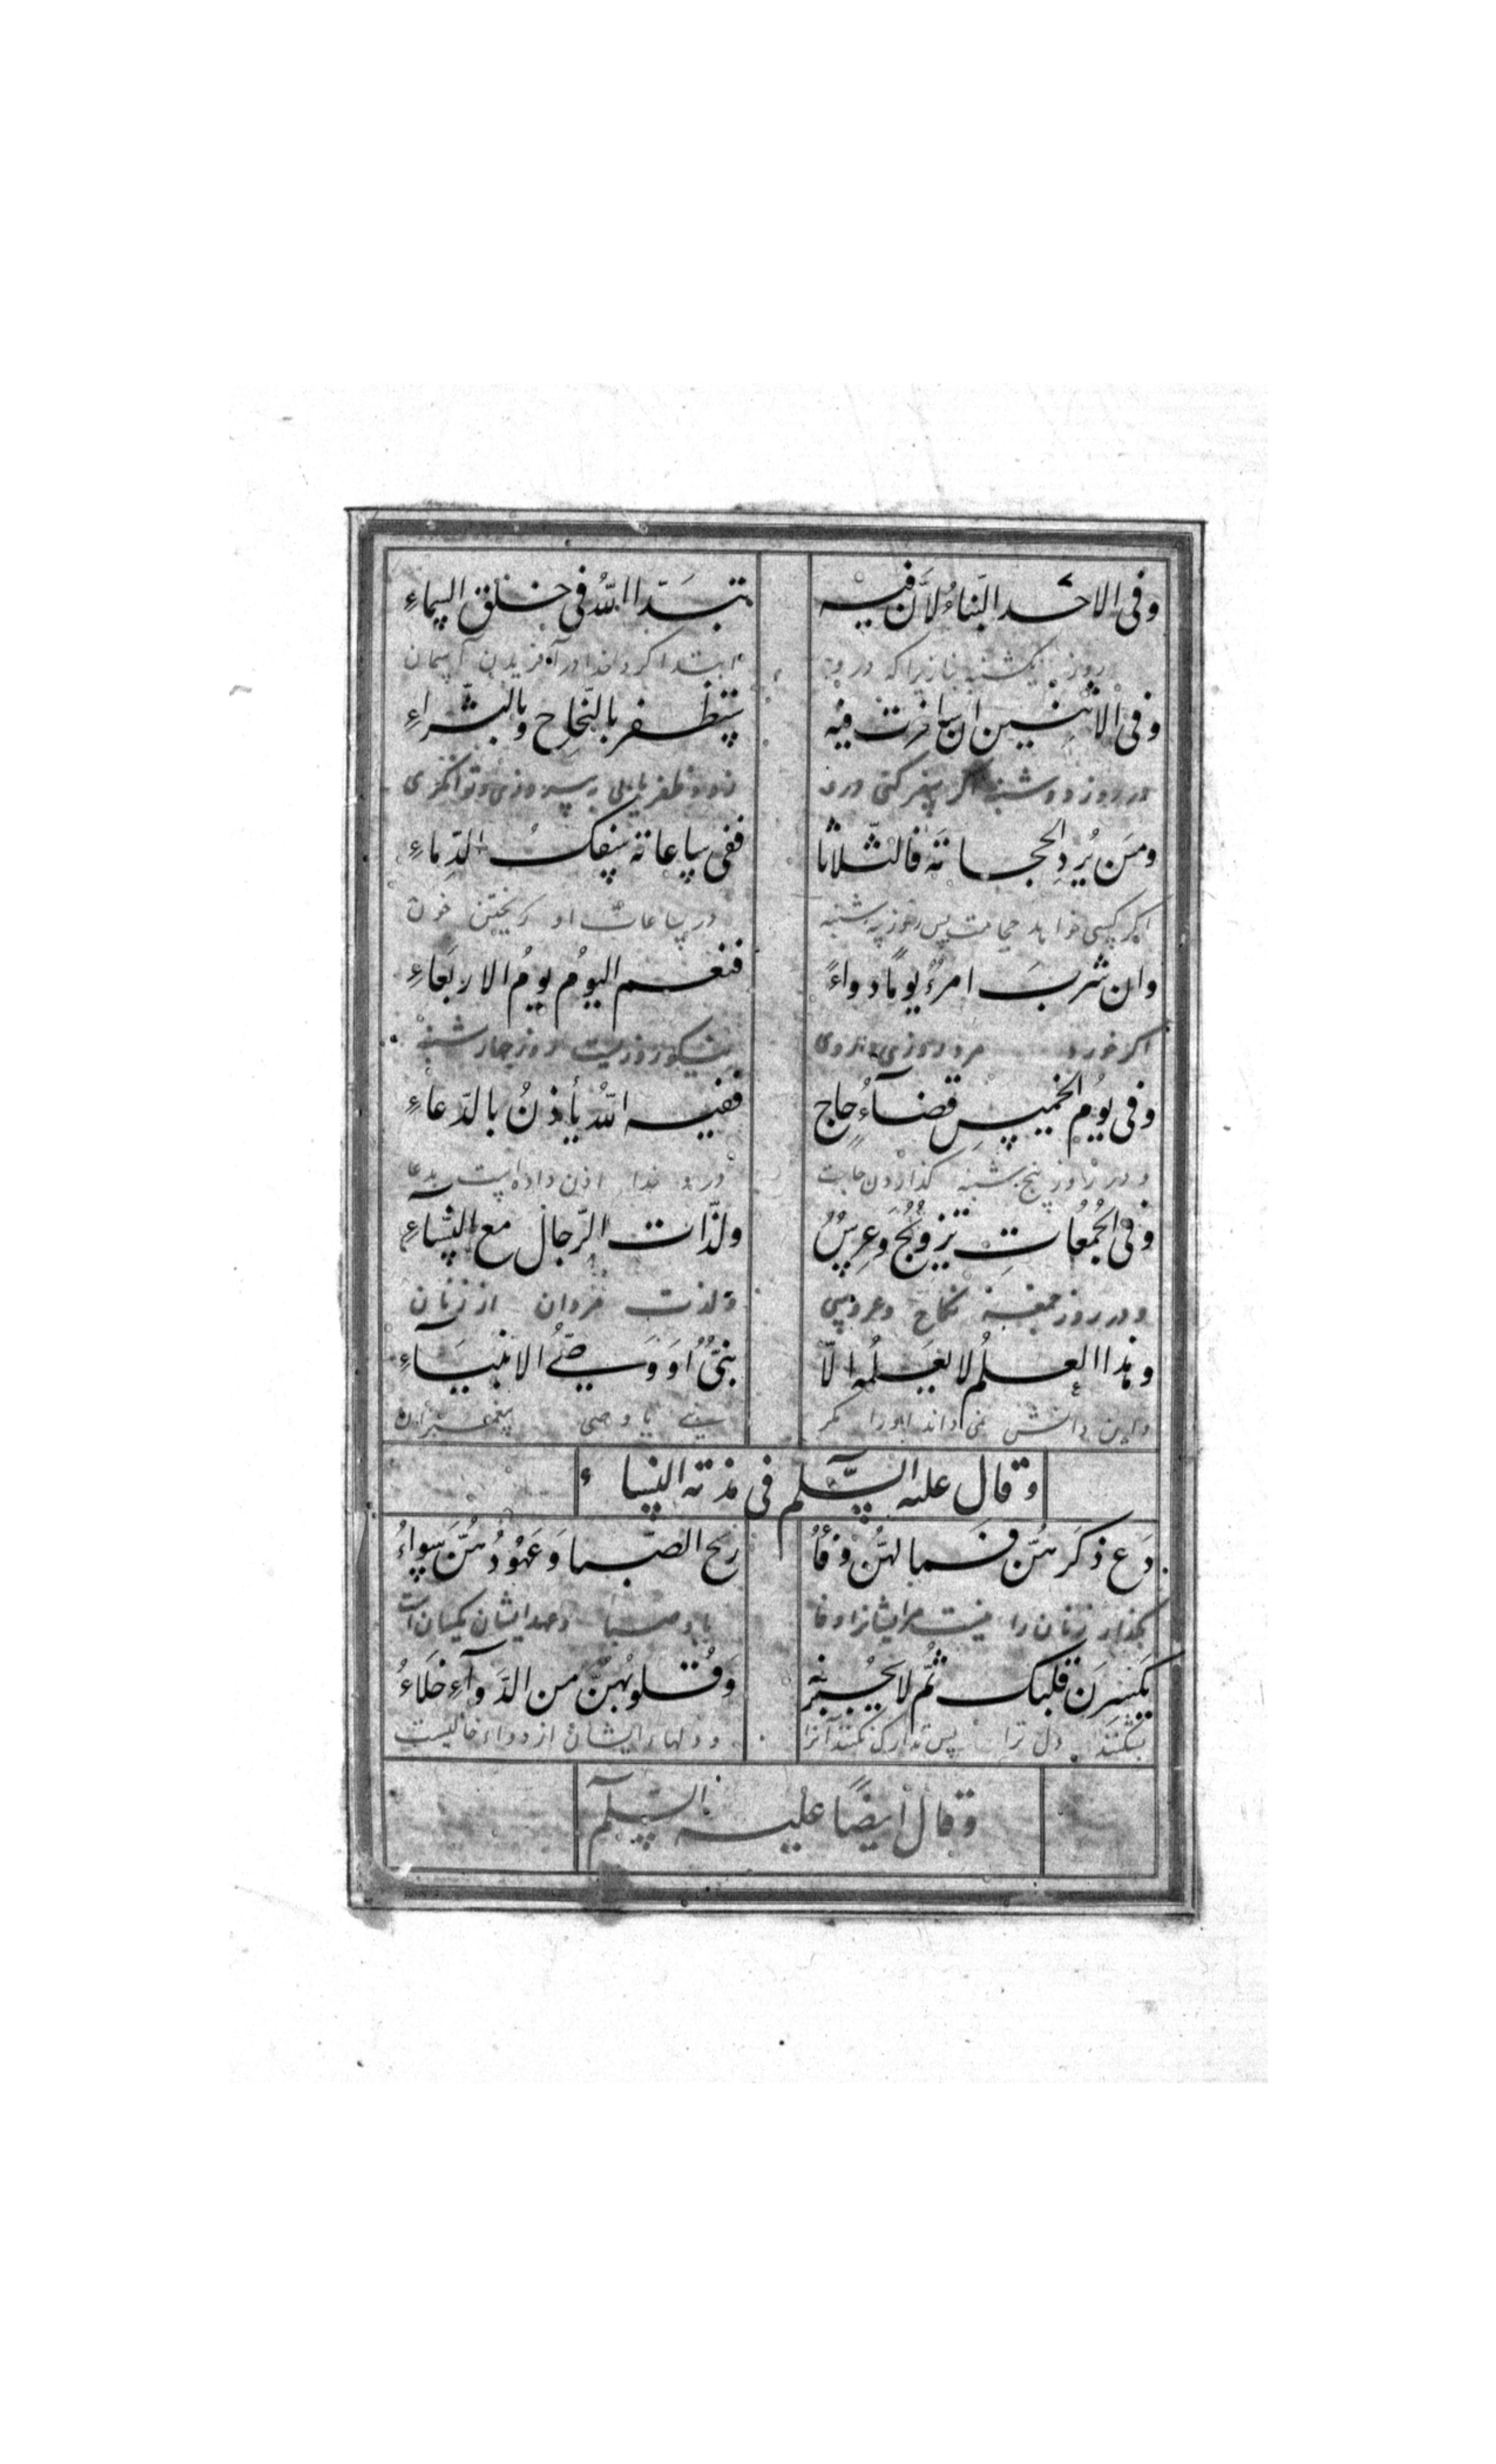 وفی الاحد البناء لان فیه تبدا الله فی خلق السماء
روز یکشنبه بنا زیرا که درو ابتدا کرد خدا در آفریدن آسمان
وفی الاثنین ان سافرت فیه ستظفر بالنجاح وبالثراء
در روز دوشنبه اگر سفر کنی درو زود ظفر یابی به پیروزی و توانگری
ومن یرد الحجامة فالثلاثا ففی ساعاته سفک الدماء
اگر کسی خواهد حجامت پس روز سه شنبه در ساعات او ریختن خون
وان شرب امرؤ یوما دواء فنعم الیوم یوم الاربعاء
اگر خورد مرد روزی داروی نیکو روزیست روز چهارشنبه
وفی یوم الخمیس قضاء حاج ففیه الله یأذن بالدعاء
و در روز پنج شنبه گذاردن حاجت درو خدا اذن داده است بدعا
وفی الجمعات تزویج وعرس ولذات الرجال مع النساء
و در روز جمعه نکاح و عروسی و لذت مردان از زنان
وهذا العلم لا یعلمه الا نبی او وصی الانبیاء
و این دانش نمی داند مگر نبی یا وصی پیغمبران
وقال علیه السلم فی مذمة النساء
دع ذکرهن فما لهن وفاء ریح الصبا وعهودهن سواء
بگذار زنان را نیست مر ایشانرا وفا باد صبا و عهد ایشان یکسان است
یکسرن قلبک ثم لا یجبرنه وقلوبهن من الدواء خلاء
بشکنند دل ترا پس تدارک نکنند آنرا و دلهاء ایشان از دواء خالیست
وقال ایضا علیه السلم